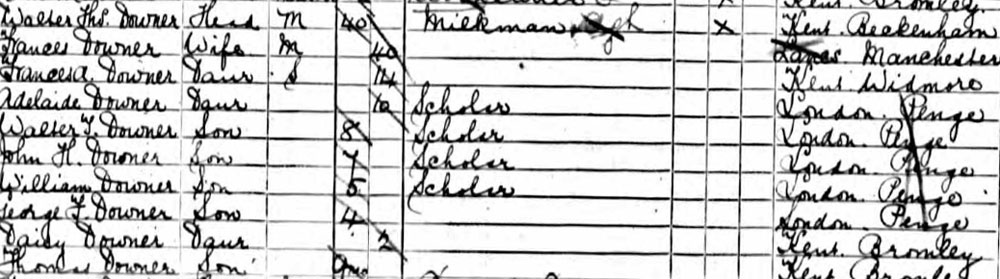 Kent. Bromley.
Walter Thos. Downer Head M 40 Milkman X Kent. Beckenham
Frances Downer Wife M 40 Lancs. Manchester
Frances A. Downer Daur S 14 Kent Widmore
Adelaide Downer Daur 10 Scholar London. Penge
Walter T. Downer Son 8 Scholar London. Penge
John H. Downer Son 7 Scholar London. Penge
William Downer Son 5 Scholar London. Penge
George F. Downer Son 4 London. Penge
Daisy Downer Daur 2 Kent. Bromley
Thomas Downer Son Kent Bromley